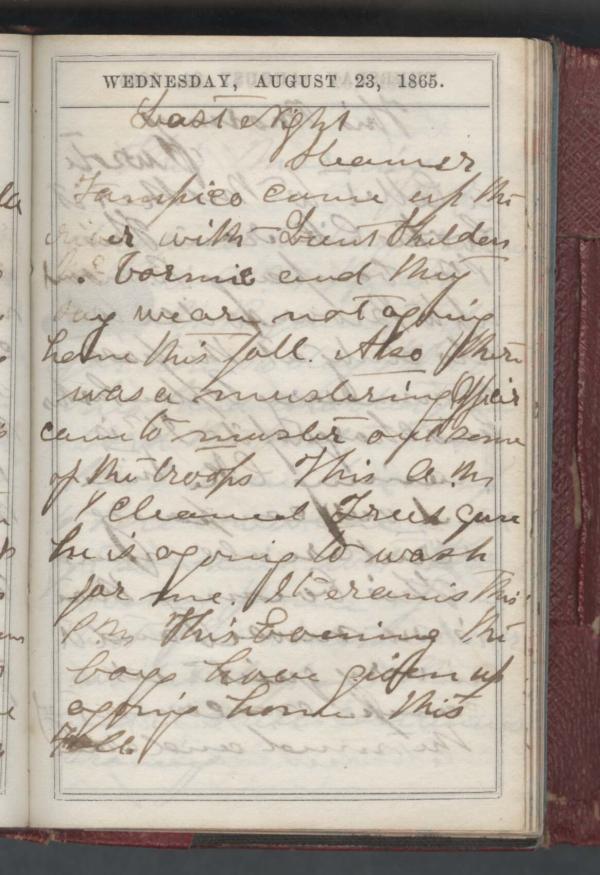 WEDNESDAY, AUGUST 23, 1865.
Last Night
Steamer
Tampico came up the
river with Lieut Childers
& Cormic and they
say we are not agoing
home this fall. Also there
was a mustering Officir
came to muster out some
of the troops This A.M
I cleaned Freds gun
he is agoing to wash
for me. It rains this
P.M This Evening the
boys have given up
agoing home this
Fall